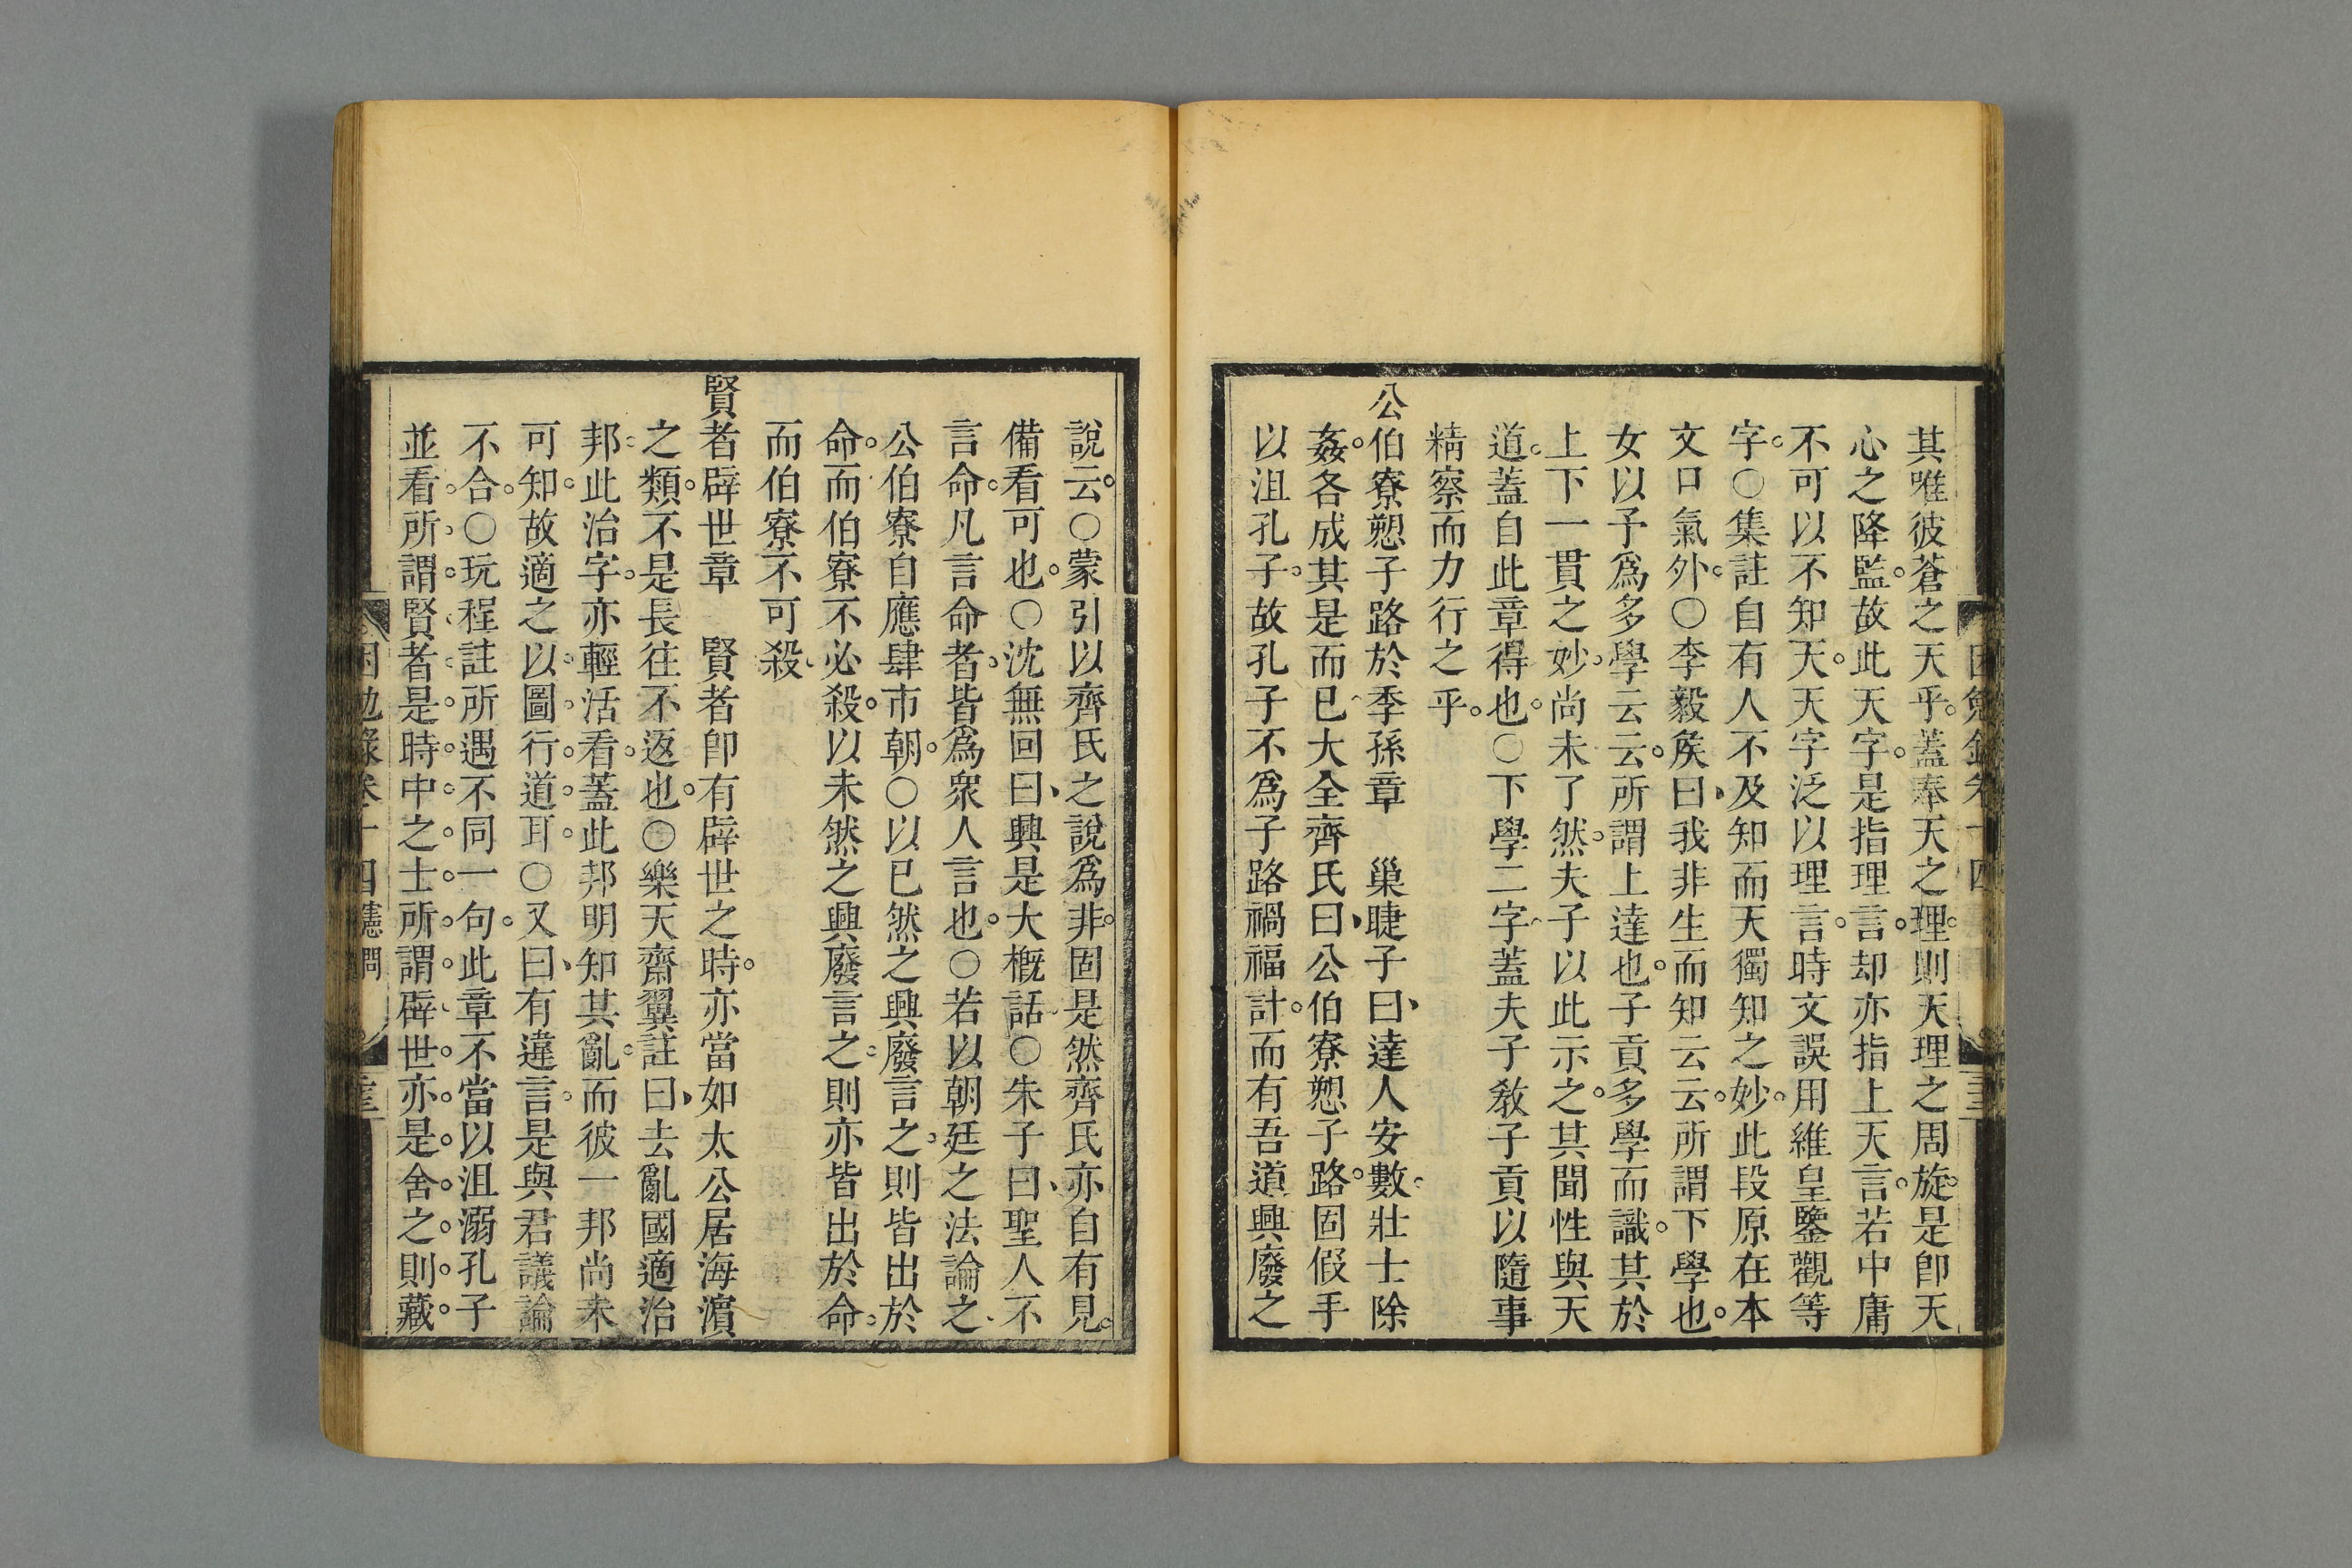 其唯彼蒼之天乎蓋奉天之理則天理之周旋是卽天
心之降監故此天字是指理言却亦指上天言若中庸
不可以不知天天字泛以理言時文誤用維皇鑒觀等
字○集註自有人不及知而天獨知之妙此段原在本
文口氣外○李毅矦曰我非生而知云云所謂下學也
女以予爲多學云云所謂上達也子貢多學而識其於
上下一貫之妙尚未了然夫子以此示之其聞性與天
道蓋自此章得也○下學二字蓋夫子敎子貢以隨事
精察而力行之乎
公伯寮愬子路於季孫章　巢睫子曰達人安數壯士除
姦各成其是而已大全齊氏曰公伯寮愬子路固假手
以沮孔子故孔子不爲子路禍福計而有吾道興廢之
說云○蒙引以齊氏之說爲非固是然齊氏亦自有見
備看可也○沈無回曰興是大槪話○朱子曰聖人不
言命凡言命者皆爲衆人言也○若以朝廷之法論之
公伯寮自應肆市朝○以已然之興廢言之則皆出於
命而伯寮不必殺以未然之興廢言之則亦皆出於命
而伯寮不可殺
賢者辟世章　賢者卽有辟世之時亦當如太公居海濵
之類不是長往不返也○樂天齋翼註曰去亂國適治
邦此治字亦輕活看蓋此邦明知其亂而彼一邦尚未
可知故適之以圖行道耳○又曰有違言是與君議論
不合○玩程註所遇不同一句此章不當以沮溺孔子
並看所謂賢者是時中之士所謂辟世亦是舍之則藏
困勉錄卷十四憲問